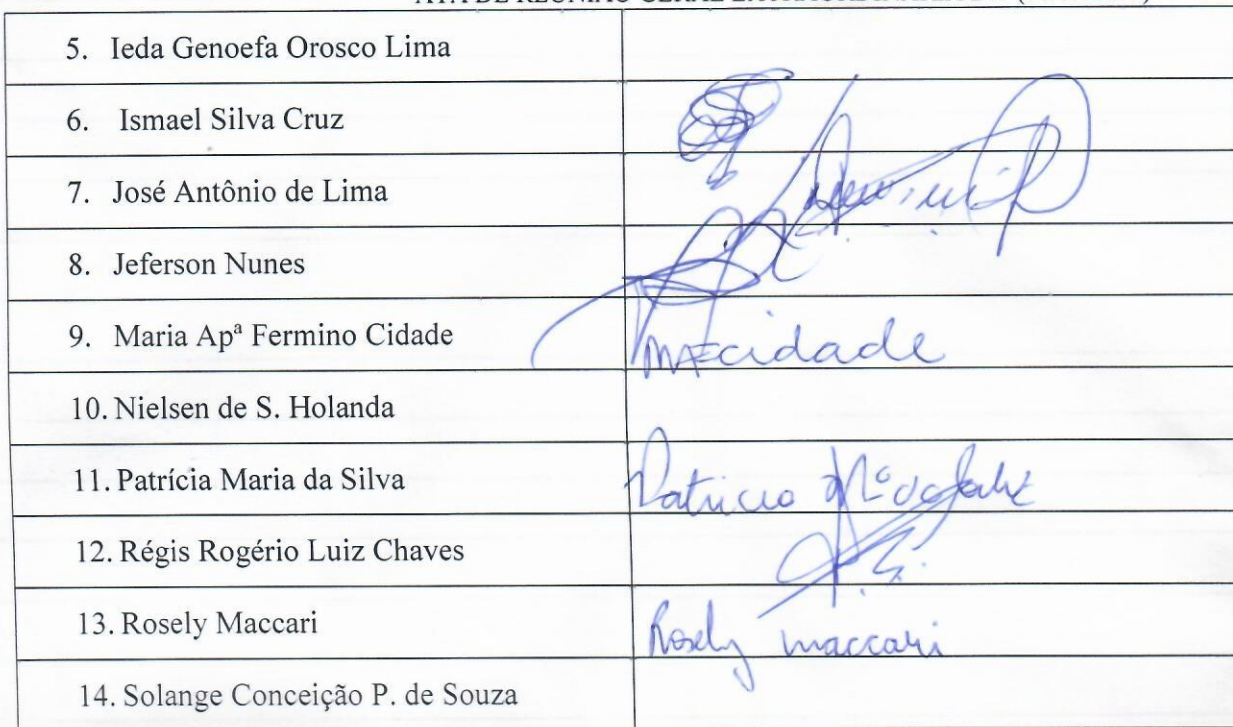 ATA DE REUNIÃO GERAL
5. Ieda Genoefa Orosco Lima
6. Ismael Silva Cruz
7. José Antônio de Lima
8. Jeferson Nunes
9. Maria Apª Fermino Cidade
MFcidade
10. Nielsen de S. Holanda
11. Patrícia Maria da Silva
12. Régis Rogério Luiz Chaves
13. Rosely Maccari
Rosely maccari
14. Solange Conceição P. de Souza